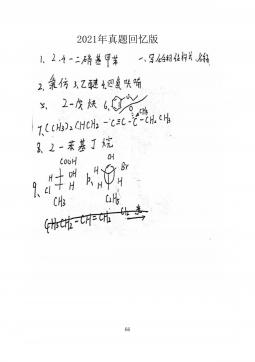 2021年真题回忆版
1、2,4-二硝基甲苯 一、写合名结构式、名称
2、氯仿 3、乙醚 4、四氢呋喃
2-戊炔 6、 CH₃
7、(CH₃)₂CHCH₂-C≡C-C-CH₂CH₃
8、2-苯基丁烷
9、 COOH H OH Cl H CH₃
10、 OH H Br H H C₂H₅
CH₃CH₂-CH=CH₂ Cl₂
66